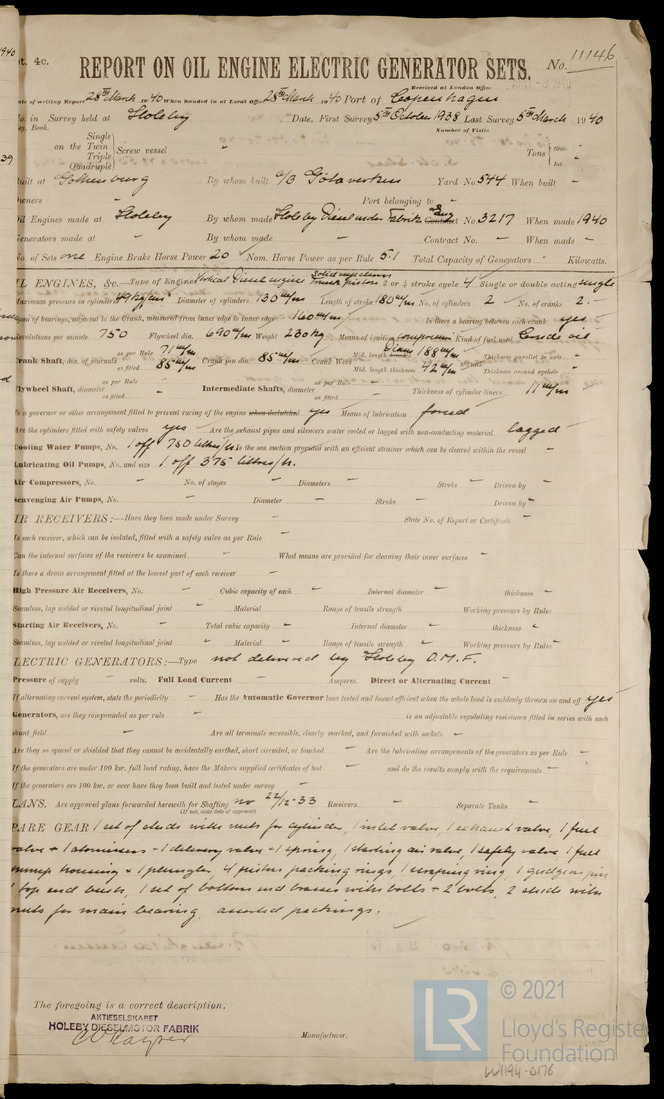 1940 pt. 4c. REPORT ON OIL ENGINE ELECTRIC GENERATOR SETS. No. 11146
Received at London Office
ate of writing Report 28th March 1940 When handed in at Local Office 28th March 1940 Port of Copenhagen
No. in Survey held at Holeby Date, First Survey 5th October 1938 Last Survey 5th March 1940
Reg. Book. Number of Visits
39 Single on the Twin Triple Quadruple Screw vessel " Tons Gross Net
Built at Gothenburg By whom built A/B Götaverken Yard No. 544 When built -
Owners - Port belonging to -
Oil Engines made at Holeby By whom made Holeby Dieselmotor Fabrik Contract Eng No. 3217 When made 1940
Generators made at - By whom made - Contract No. - When made -
No. of Sets one Engine Brake Horse Power 20 Nom. Horse Power as per Rule 5.1 Total Capacity of Generators - Kilowatts.
IL ENGINES, &c.—Type of Engines Vertical Diesel engine solid injection Trunk pistons 2 or 4 stroke cycle 4 Single or double acting single
Maximum pressure in cylinders 49 kg/cm² Diameter of cylinders 130 m/m Length of stroke 180 m/m No. of cylinders 2 No. of cranks 2
Span of bearings, adjacent to the Crank, measured from inner edge to inner edge 160 m/m Is there a bearing between each crank yes
Revolutions per minute 750 Flywheel dia. 690 m/m Weight 230 kg Means of ignition compression Kind of fuel used Crude oil
Crank Shaft, dia. of journals as per Rule 71 m/m as fitted 85 m/m Crank pin dia. 85 m/m Crank Webs Mid. length breadth Diam 188 m/m Mid. length thickness 42 m/m Thickness parallel to axis - Thickness around eyehole -
Flywheel Shaft, diameter as per Rule - as fitted Intermediate Shafts, diameter as per Rule - as fitted Thickness of cylinder liners 11 m/m
Is a governor or other arrangement fitted to prevent racing of the engine when declutched yes Means of lubrication forced
Are the cylinders fitted with safety valves yes Are the exhaust pipes and silencers water cooled or lagged with non-conducting material lagged
Cooling Water Pumps, No. 1 off 750 littres/h. Is the sea suction provided with an efficient strainer which can be cleared within the vessel -
Lubricating Oil Pumps, No. and size 1 off 375 littres/h.
Air Compressors, No. - No. of stages - Diameters - Stroke - Driven by -
Scavenging Air Pumps, No. - Diameter - Stroke - Driven by -
IR RECEIVERS:—Have they been made under Survey - State No. of Report or Certificate -
Is each receiver, which can be isolated, fitted with a safety valve as per Rule -
Can the internal surfaces of the receivers be examined - What means are provided for cleaning their inner surfaces -
Is there a drain arrangement fitted at the lowest part of each receiver -
High Pressure Air Receivers, No. - Cubic capacity of each - Internal diameter - thickness -
Seamless, lap welded or riveted longitudinal joint - Material - Range of tensile strength - Working pressure by Rules -
Starting Air Receivers, No. - Total cubic capacity - Internal diameter - thickness -
Seamless, lap welded or riveted longitudinal joint - Material - Range of tensile strength - Working pressure by Rules -
LECTRIC GENERATORS:—Type not delivered by Holeby D.M.F.
Pressure of supply - volts. Full Load Current - Amperes. Direct or Alternating Current -
If alternating current system, state the periodicity - Has the Automatic Governor been tested and found efficient when the whole load is suddenly thrown on and off yes
Generators, are they compounded as per rule - is an adjustable regulating resistance fitted in series with each
shunt field - Are all terminals accessible, clearly marked, and furnished with sockets -
Are they so spaced or shielded that they cannot be accidentally earthed, short circuited, or touched - Are the lubricating arrangements of the generators as per Rule -
If the generators are under 100 kw. full load rating, have the Makers supplied certificates of test - and do the results comply with the requirements -
If the generators are 100 kw. or over have they been built and tested under survey -
LANS. Are approved plans forwarded herewith for Shafting no 22/12-33 Receivers - Separate Tanks -
(If not, state date of approval)
PARE GEAR 1 set of studs with nuts for cylinder, 1 inlet valve, 1 exhaust valve, 1 fuel
valve + 1 atomisers + 1 delivery valve + 1 spring, 1 starting air valve, 1 safety valve, 1 fuel
pump housing + 1 plunger, 4 piston packing rings, 1 scraping ring, 1 gudgeon pin
1 top end bush, 1 set of bottom end brasses with bolts + 2 bolts, 2 studs with
nuts for main bearing, assorted packings.
The foregoing is a correct description.
AKTIESELSKABET
HOLEBY DIESELMOTOR FABRIK
Manufacturer.
LR © 2021
Lloyd's Register
Foundation
W1194-0176